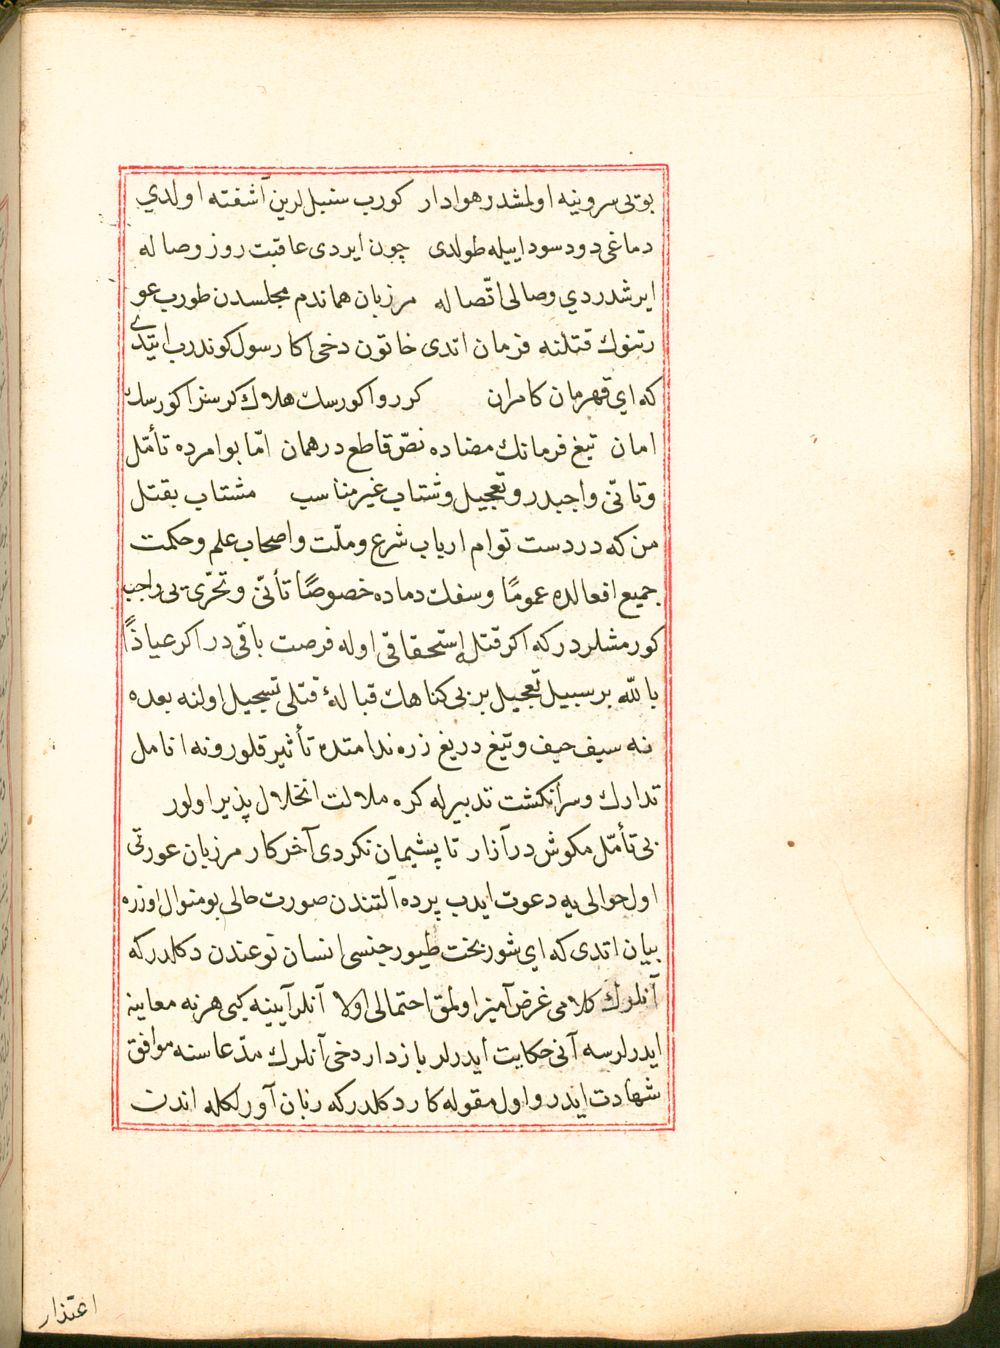 بوتى سروينه اولمشدر هوادار كورب سنبللرين آشفته اولدي
دماغى دود سودا ايله طولدى چون ايردى عاقبت روز وصاله
ايرشدردي وصالى اتّصاله مرزبان هماندم مجلسدن طورب عو
رتنوك قتلنه فرمان اتدى خاتون دخى اكا رسول كوندرب ايتدى
كه اي قهرمان كامران كر روا كورسك هلاك كر سزا كورسك
امان تيغ فرمانك مضاده نصّ قاطع در همان امّا بو امرده تأمّل
وتانّى واجبدر وتعجيل وشتاب غير مناسب مشتاب بقتل
من كه در دست توام ارباب شرع وملّت واصحاب علم وحكمت
جميع افعالده عمومًا وسفك دماده خصوصًا تأنّى وتحرّى يى واجب
كورمشلردر كه اكر قتل إستحقاقى اوله فرصت باقى در اكر عياذًا
بالله بر سبيل تعجيل بر بى كناهك قبالهٔ قتلى تسجيل اولنه بعده
نه سيف حيف وتيغ دريغ زره ندامتده تأثير قلور ونه انامل
تدارك وسر انكشت تدبيرله كره ملالت انحلال پذير اولور
بى تأمّل مكوش در آزار تا پشيمان نكردى آخر كار مرزبان عورتى
اول حوالى يه دعوت ايدب پرده آلتندن صورت حالى بو منوال اوزره
بيان اتدى كه اي شور بخت طيور جنسى انسان نوعندن دكلدر كه
آنلرك كلامى غرض آميز اولمق احتمالى اولا آنلر آيينه كبى هر نه معاينه
ايدرلرسه آنى حكايت ايدرلر بازدار دخى آنلرك مدّعاسنه موافق
شهادت ايدر واول مقوله كار دكلدر كه زبان آورلكله اندن
اعتذار